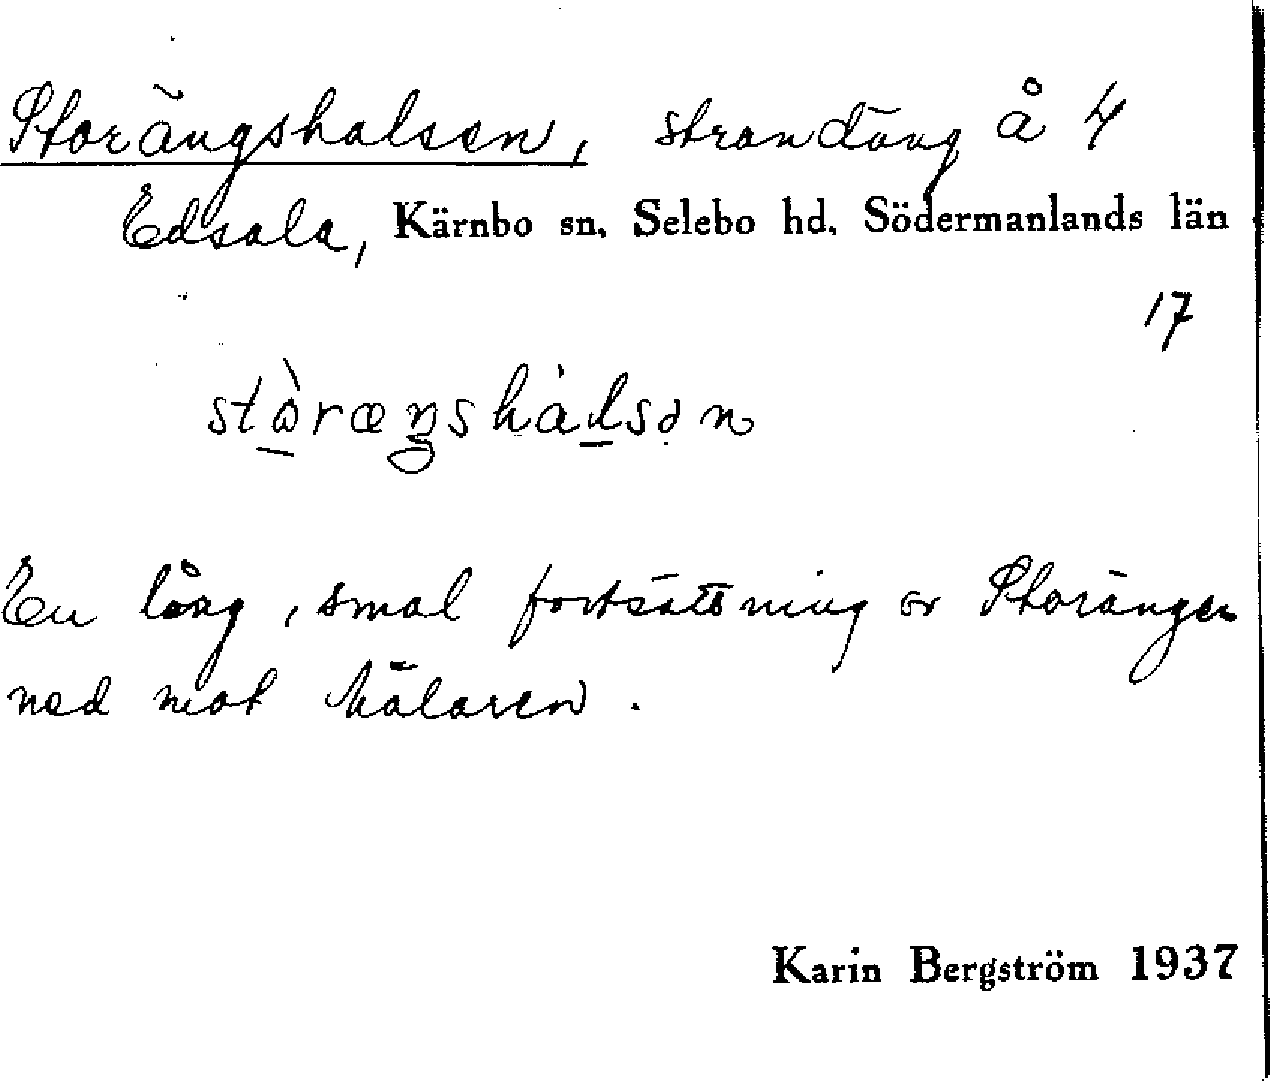 Storängshalsen, strandäng å 4
Edsala, Kärnbo sn. Selebo hd. Södermanlands län
17
stòræŋshàlsən
En lång, smal fortsättning av Storängen
ned mot Mälaren.
Karin Bergström 1937